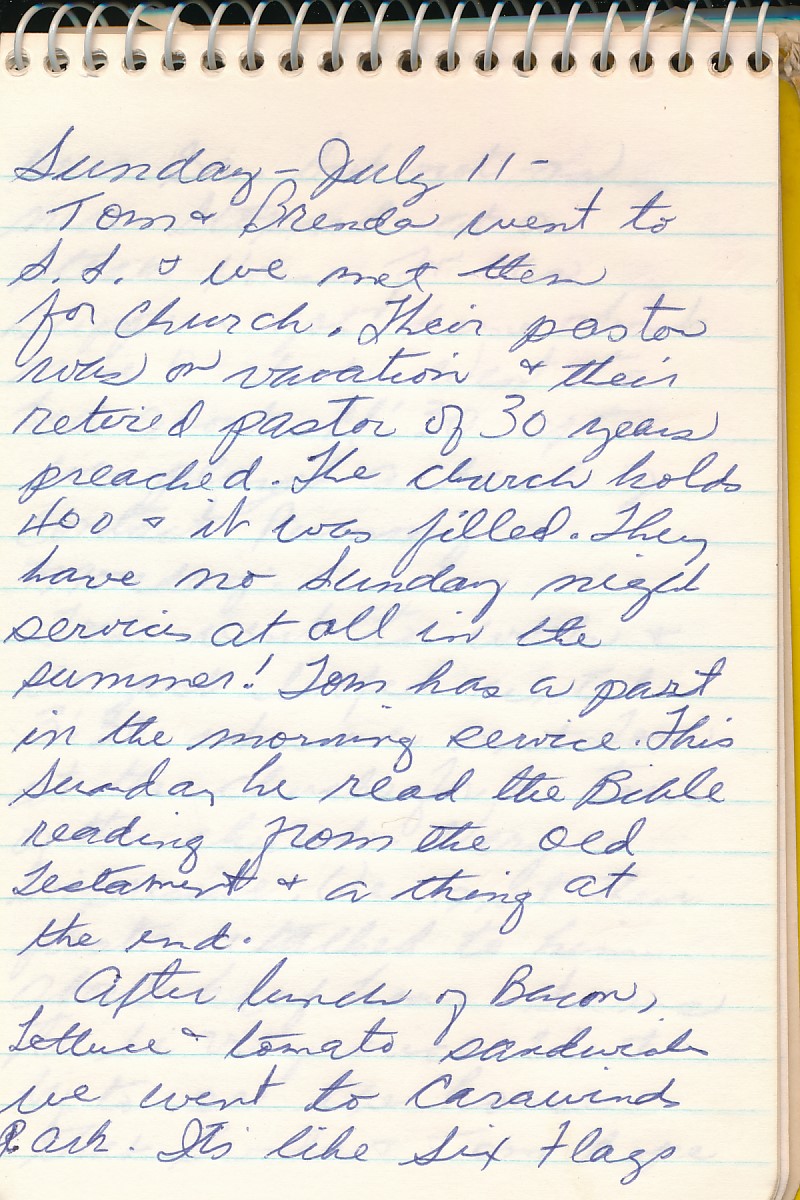 Sunday - July 11 -
Tom & Brenda went to
S.S. & we met them
for church. Their pastor
was on vacation & their
retired pastor of 30 years
preached. The church holds
400 & it was filled. They
have no Sunday night
services at all in the
summer! Tom has a part
in the morning service. This
Sunday he read the Bible
reading from the old
Testament & a thing at
the end.
After lunch of Bacon,
Lettuce & tomato sandwiches
we went to Carawinds
Park. It's like Six Flags